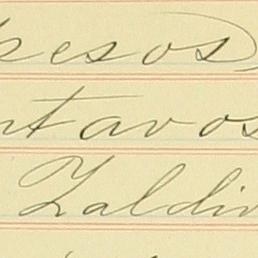 pesos
ntavos
Zaldiv